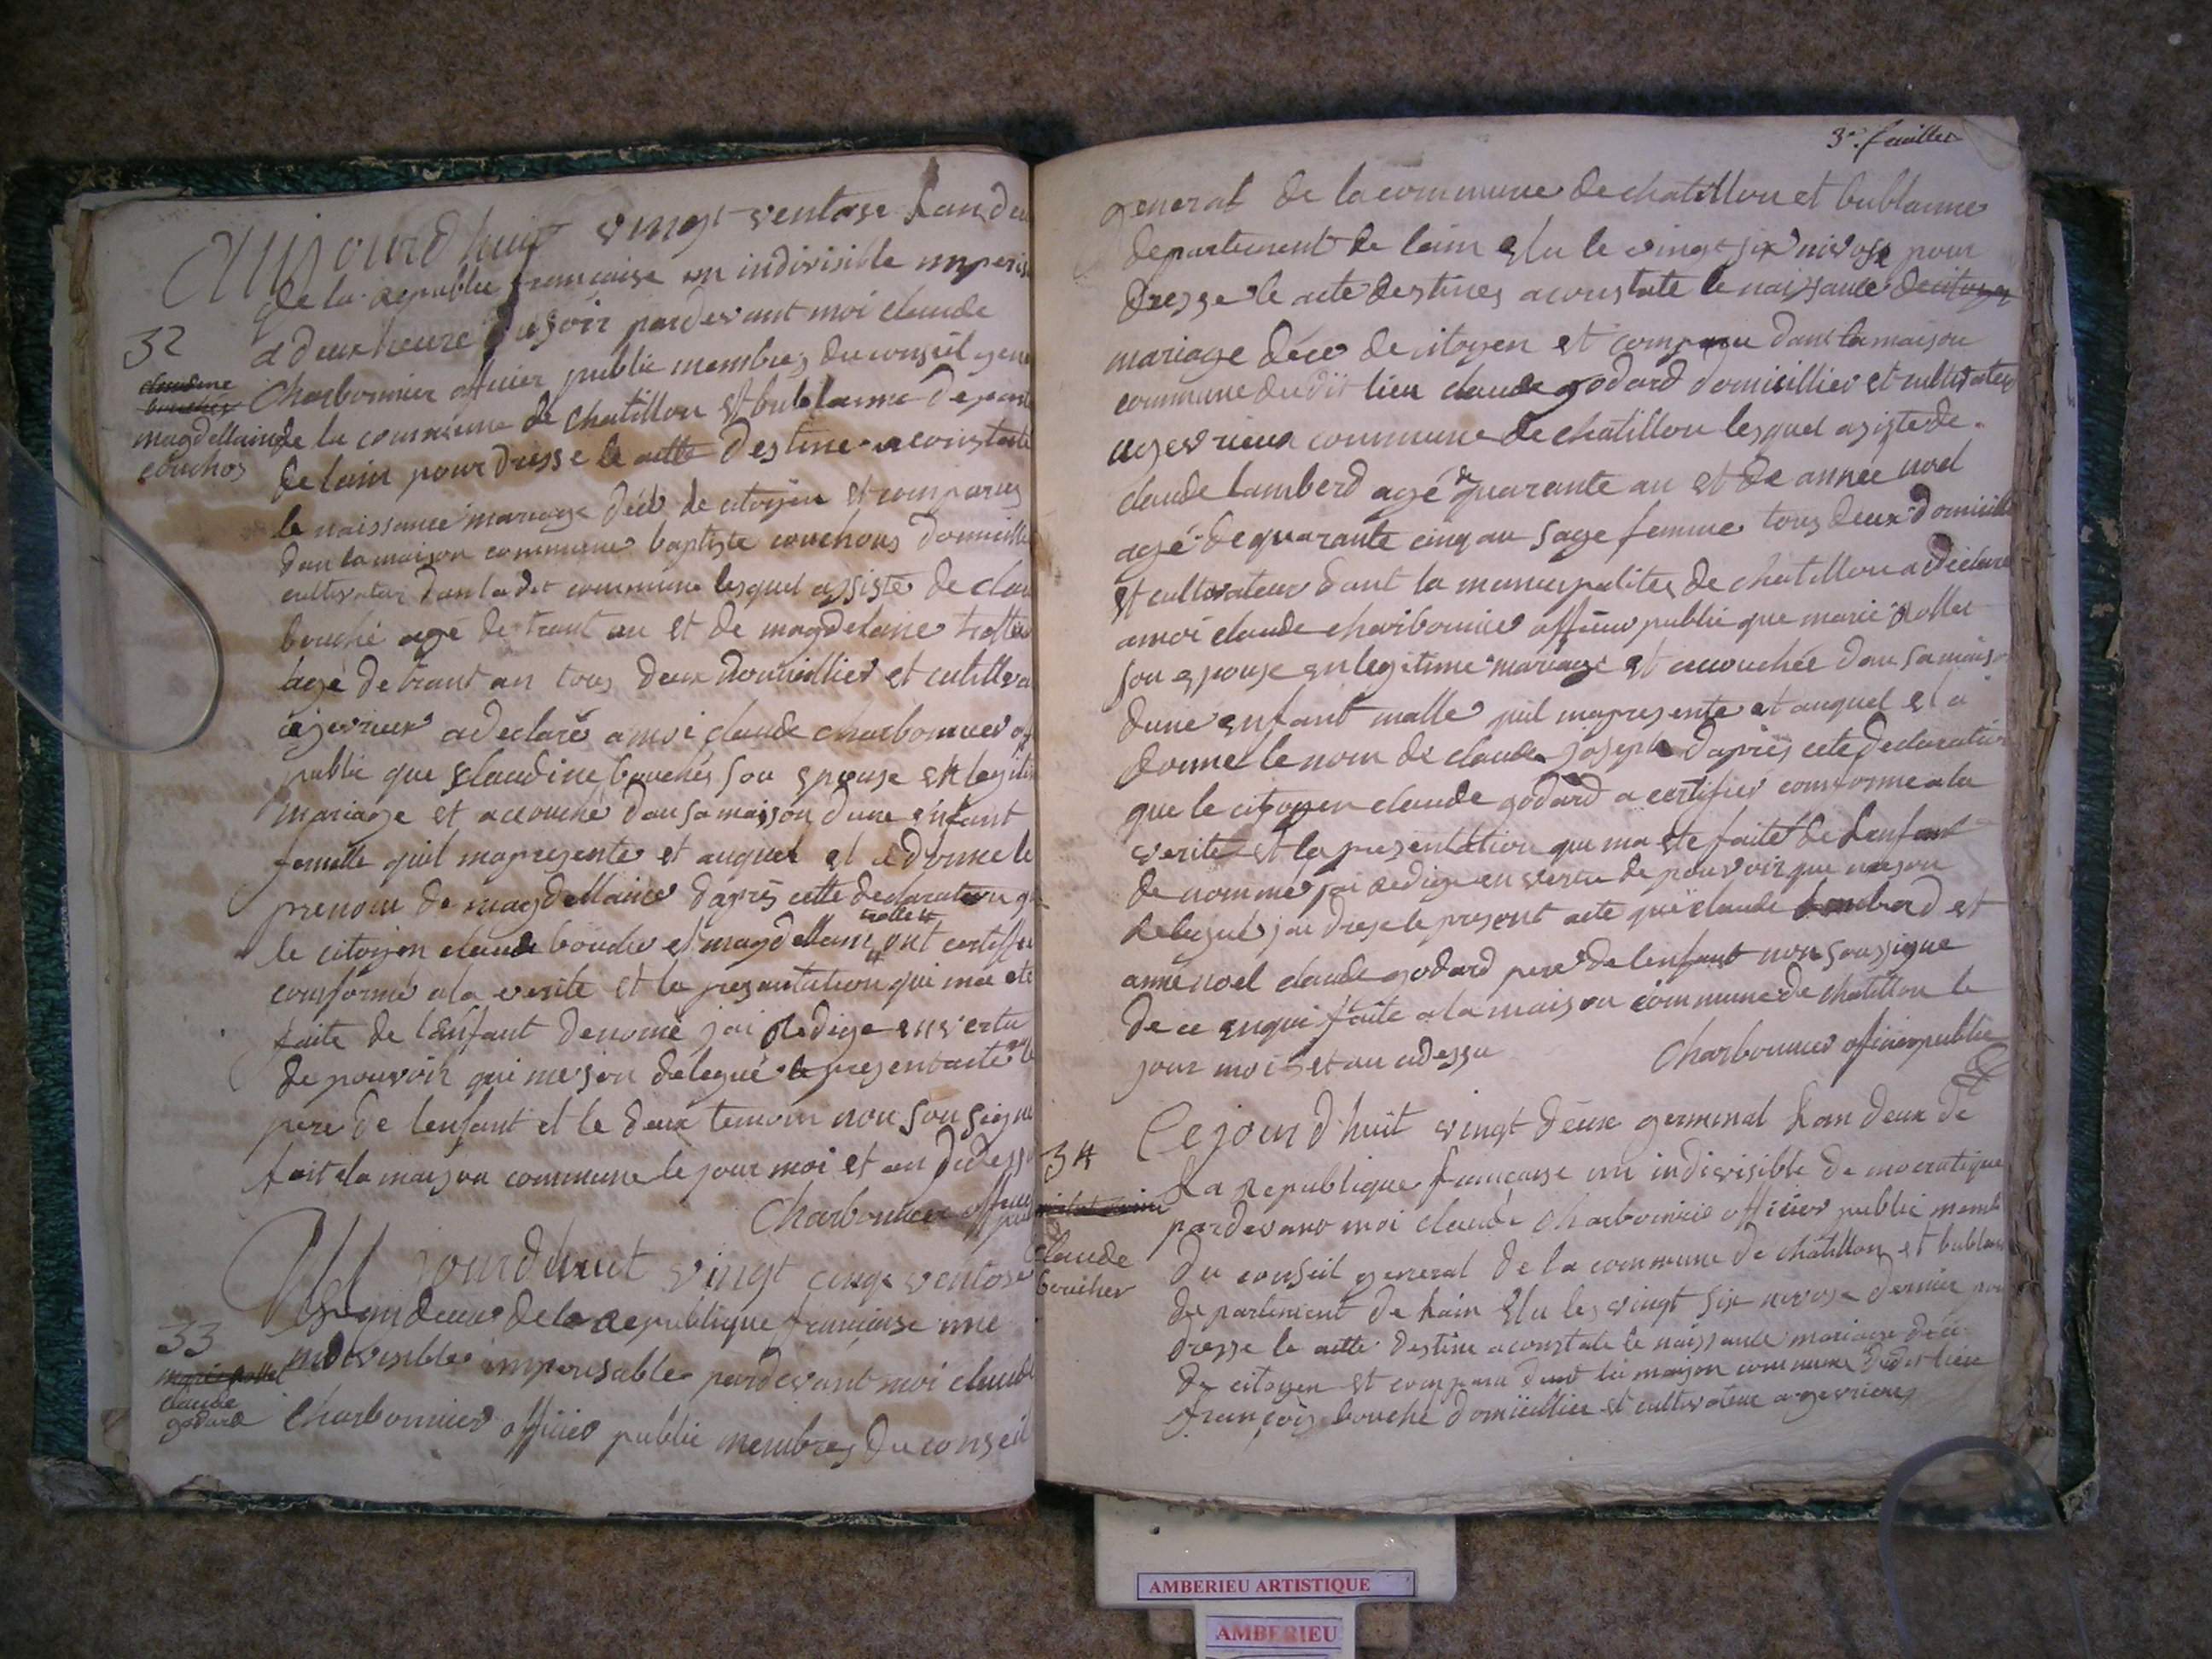 Aujourdhuit vingt ventose Lan deu
de la republie francaise un indivisible imperis
a deux heure du soir pardevant moi claude
32
claudine
bouchés
magdellaine
couchos
Charbonnier officier public membres du conseil gene
de la commune de chatillon et bublanne depart
de lain pour dresse le actte destine a constate
le naissance mariage décé de citoyen et comparus
dan la maison commune baptiste couchous domicillié
cultivateur dan la dit commune lesquel assisté de clau
bouché agé de trant an et de magdelaine trollie
agé de trant an tous deux domicillier et cultiva
agevrieux a declaré a moi claude charbonnier off
public que claudine bouchés son epouse en legiti
mariage et acouché dan sa maison dune enfant
femelle quil mapresente et auquel el a donne le
prenom de magdellaine daprès cette declaration que
le citoyen claude bouche et magdellaine trollett ont certiffie
conforme a la verite et la presentation qui ma ete
faite de lanfant denomé jai redige en vertu
de pouvoir qui me son delegué le present acte le
pere de lenfant et le deux temoin non sousigne
fait ala maison commune le jour moi et an didessu
Charbonnier officier public
Aujourdhuit vingt cinqe ventose
Lan deux de la republique françaïse une
33
marie rollet
claude
godard
indivisible imperisable pardevant moi claude
Charbonnier officier public membres du conseil
3e. feuillet
general de la commune de chatillon et bublanne
departement de lain elu le vingt six nivose pour
dresse le acte destines a constate le naissance de citoyen
mariage décé de citoyen et comparu dans la maison
commune du dit lieu claude godard domicillier et cultivateur
agevrieux commune de chatillon lesquel asisté de
claude lamberd agé de quarante an et de année noel
agé de quarante cinq an sage femme tous deux domicillié
et cultivateur dant la municipalites de chatillon a déclare
a moi claude charbonnier officier public que marie rollet
son epouse en legitime mariage et acouchée dan sa maiso
dune enfant malle quil mapresente et auquel el a
donné le nom de claude joseph daprès cete declaration
que le citoyen claude godard a certifier comforme a la
verite et la presentation qui ma ete faite de lenfant
denommé jai redige en vertu de pouvoir que me son
delegué jai dresse le present acte que claude lambard et
anne noel claude godard pere de lenfant non sousigne
de ce enqui faite a la maison commune de chatillon le
jour moi et an cidessu
Charbonnier officier public
Cejourd'huit vingt deux germinal Lan deux de
34
claude
boucher
La republique francaise un indivisible democratique
pardevant moi claude charbonnier officier public memb
du conseil general de la commune de chatillon et bublanne
departement de Lain elu les vingt six nivose dernier pour
dresse le actte destine a constate le naissance mariage décé
de citoyen et comparu dant la maison commune dudit lieu
françois bouché domicillier et cultivateur agevrieux
AMBERIEU ARTISTIQUE
AMBERIEU